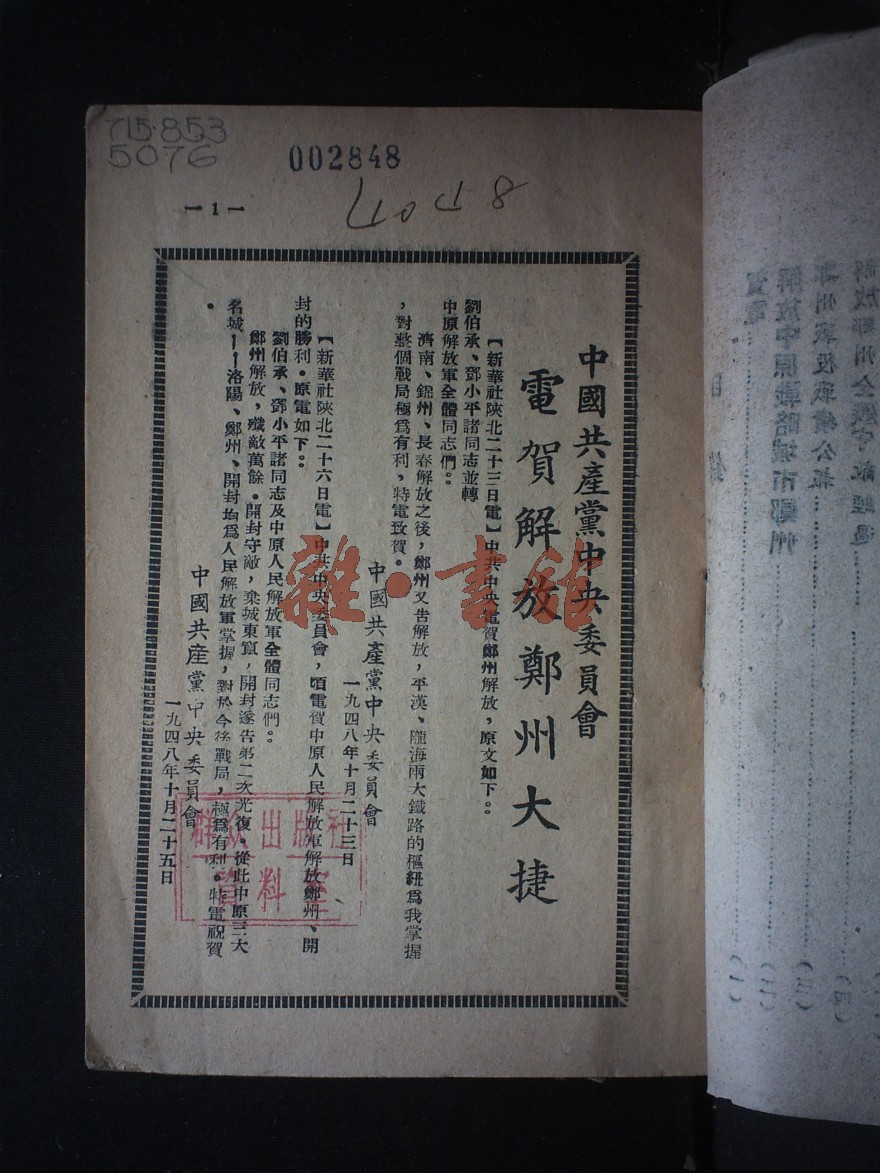 715.853
5076
002848
—1—
中國共產黨中央委員會
電賀解放鄭州大捷
【新華社陝北二十三日電】中共中央電賀鄭州解放，原文如下：
劉伯承、鄧小平諸同志並轉
中原解放軍全體同志們：
濟南、錦州、長春解放之後，鄭州又告解放，平漢、隴海兩大鐵路的樞紐爲我掌握
，對整個戰局極爲有利，特電致賀。
中國共產黨中央委員會
一九四八年十月二十三日
【新華社陝北二十六日電】中共中央委員會，頃電賀中原人民解放軍解放鄭州、開
封的勝利。原電如下：
劉伯承、鄧小平諸同志及中原人民解放軍全體同志們：
鄭州解放，殲敵萬餘。開封守敵，棄城東竄，開封遂告第二次光復。從此中原三大
名城——洛陽、鄭州、開封均爲人民解放軍掌握，對於今後戰局，極爲有利。特電祝賀
。
中國共產黨中央委員會
一九四八年十月二十五日
群眾出版社
資料室
雜·書館
賀電
解放中原戰略城市鄭州
鄭州戰役戰績公報